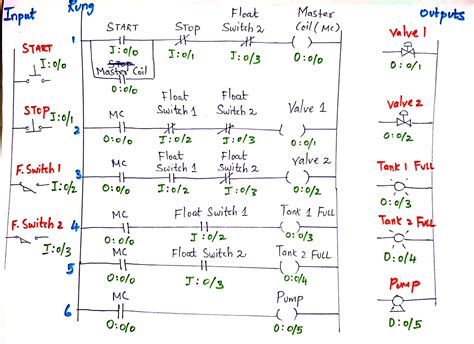 Input Rung Outputs
START STOP Float Switch 2 Master Coil (MC)
1
I:0/0 I:0/1 I:0/3 O:0/0
Stop
Master Coil
O:0/0
START
I:0/0
Valve 1
O:0/1
MC Float Switch 1 Float Switch 2 Valve 1
2
O:0/0 I:0/2 I:0/3 O:0/1
STOP I:0/1
Valve 2
O:0/2
MC Float Switch 1 Float Switch 2 Valve 2
3
O:0/0 I:0/2 I:0/3 O:0/2
F. Switch 1
I:0/2
Tank 1 Full
O:0/3
MC Float Switch 1 Tank 1 Full
4
O:0/0 I:0/2 O:0/3
F. Switch 2
I:0/3
Tank 2 Full
O:0/4
MC Float Switch 2 Tank 2 Full
5
O:0/0 I:0/3 O:0/4
MC Pump
6
O:0/0 O:0/5
Pump
O:0/5